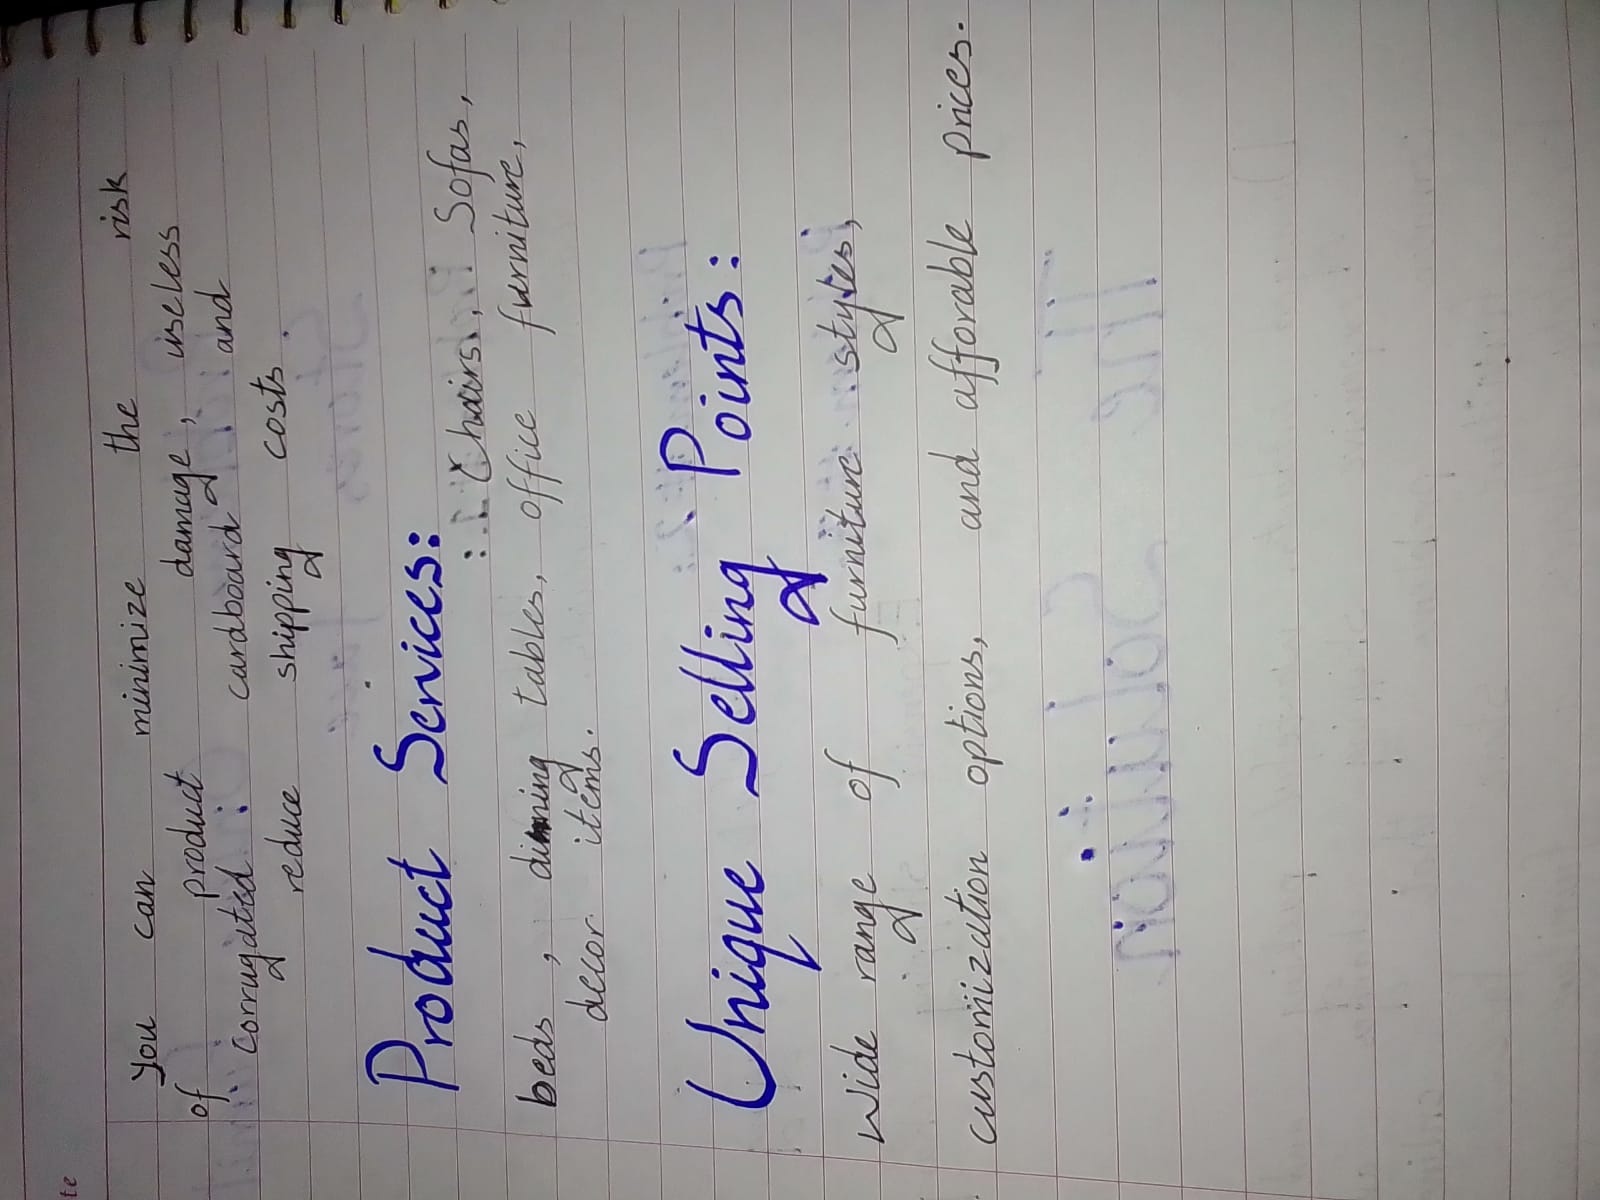 You can minimize the risk
of product damage, useless
corrugated cardboard and
reduce shipping costs.
Product Services:
Chairs, Sofas,
beds, dinning tables, office furniture, furniture,
decor items.
Unique Selling Points:
Wide range of furniture styles,
customization options, and afforable prices.
te